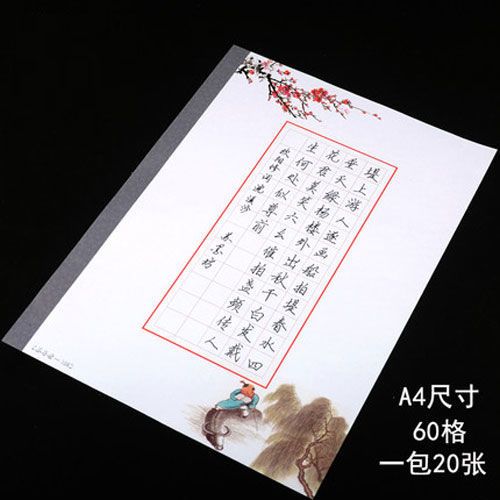 堤上游人逐画船拍堤春水四
垂天绿杨楼外出秋千白发戴
花君莫笑六幺催拍盏频传人
生何处似尊前
欧阳修词浣溪沙
苏墨坊
A4尺寸
60格
一包20张